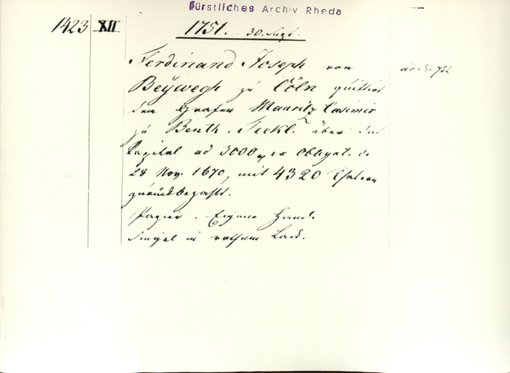 Fürstliches Archiv Rheda
1423 XII 1751. 30. Sept.
Ferdinand Joseph von
Beÿwegh zu Cöln quittirt
dem Grafen Mauritz Casimir
zu Benth. Teckl. über das
Kapital ad 3000 ex Obligat. de
28 Nov. 1670, mit 4320 Thalern
zurückbezahlt.
Papier. Eigene Hand.
Siegel in rothem Lack.